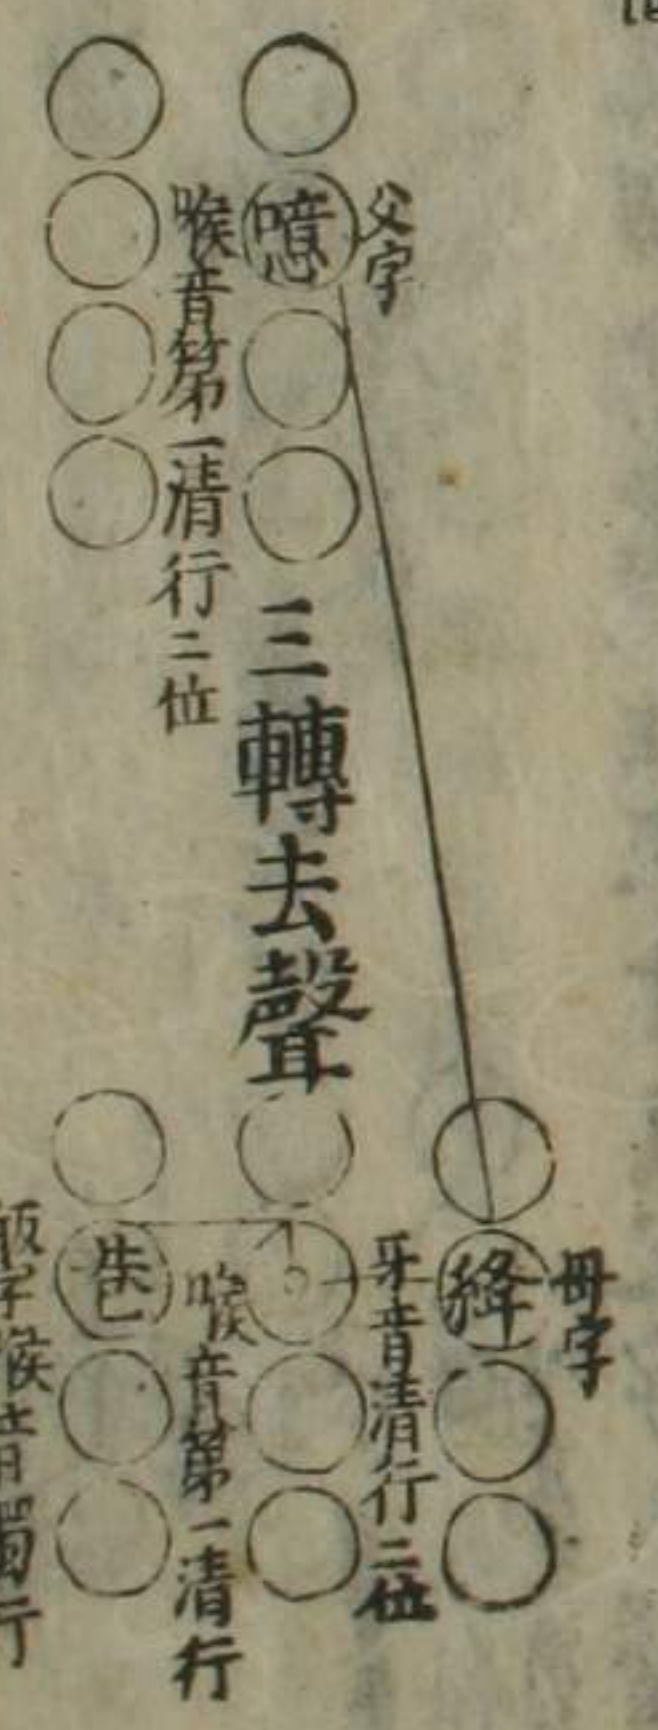 父字
噫
喉音第一清行二位
三轉去聲
母字
絳
牙音清行二位
喉音第一清行
巷
喉音濁行